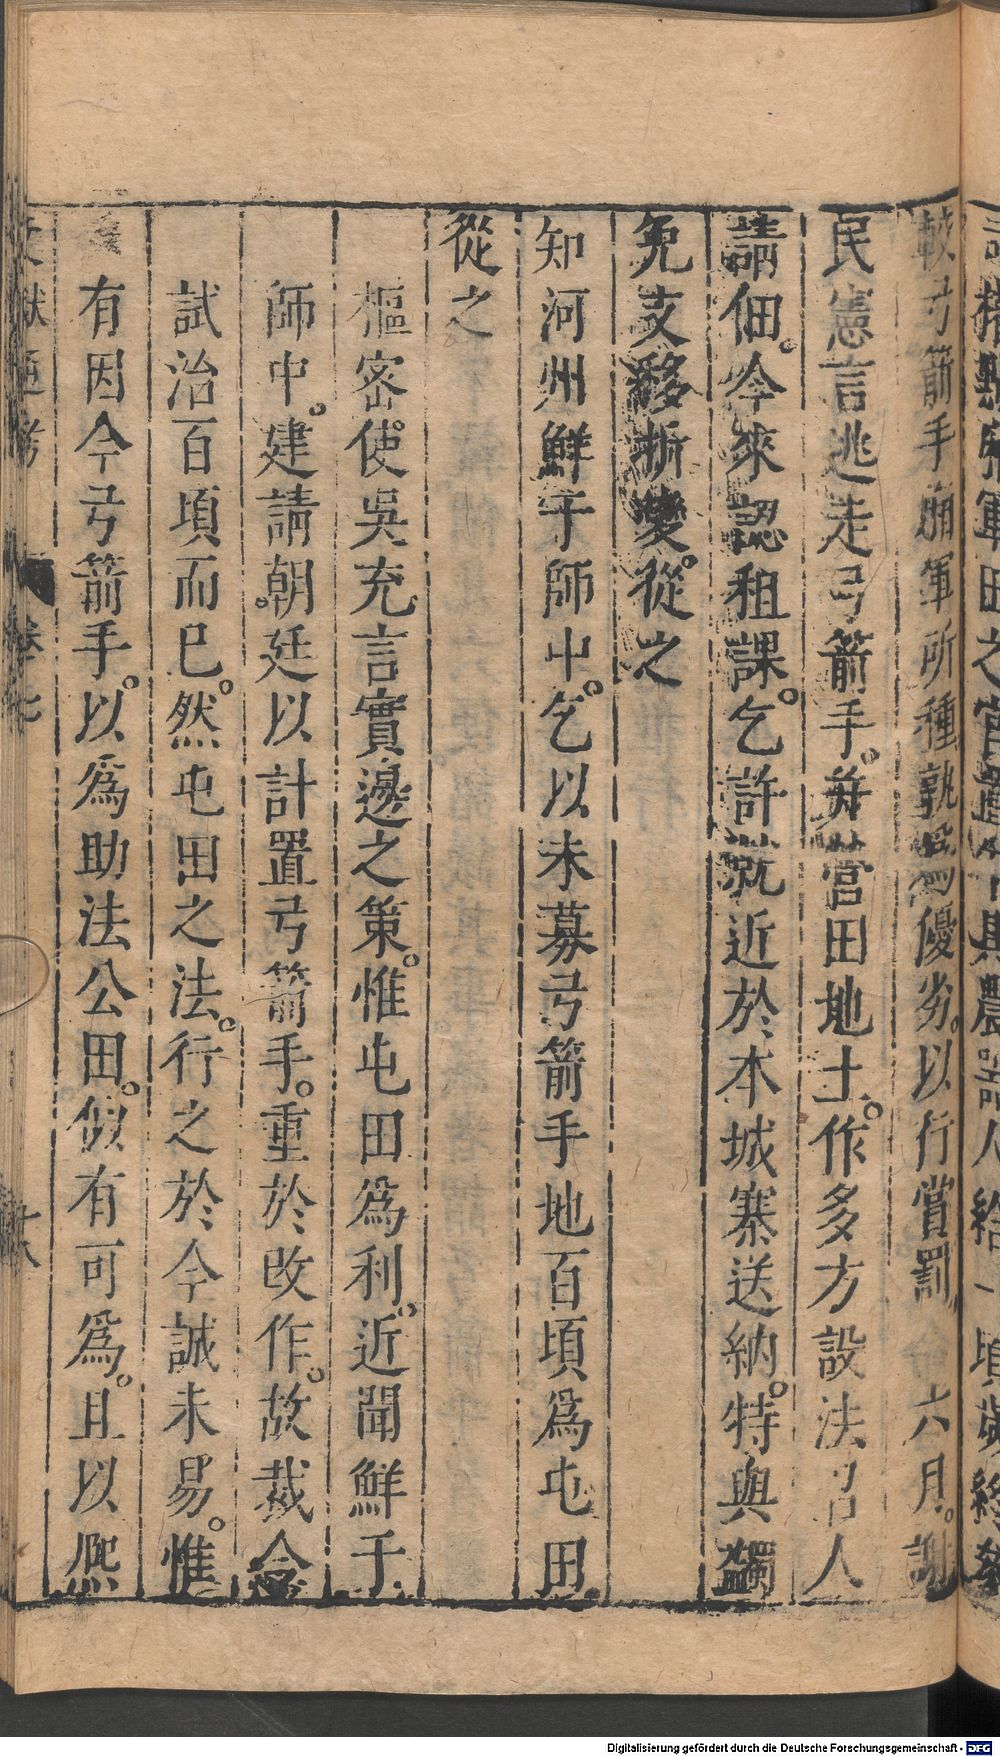 較弓箭手廂軍所種孰爲優劣。以行賞罰。六月。謝
民憲言逃走弓箭手。并營田地土。作多方設法召人
請佃。今來認租課。乞許就近於本城寨送納。特與蠲
免支移折變。從之
知河州鮮于師中。乞以未募弓箭手地百頃爲屯田。
從之
樞密使吳充言實邊之策。惟屯田爲利。近聞鮮于
師中。建請朝。廷以計置弓箭手。重於改作。故裁令
試治百頃而已。然屯田之法。行之於今誠未易。惟
有因今弓箭手。以爲助法公田。似有可爲。且以熈
文献通考 卷七 十八
Digitalisierung gefördert durch die Deutsche Forschungsgemeinschaft - DFG